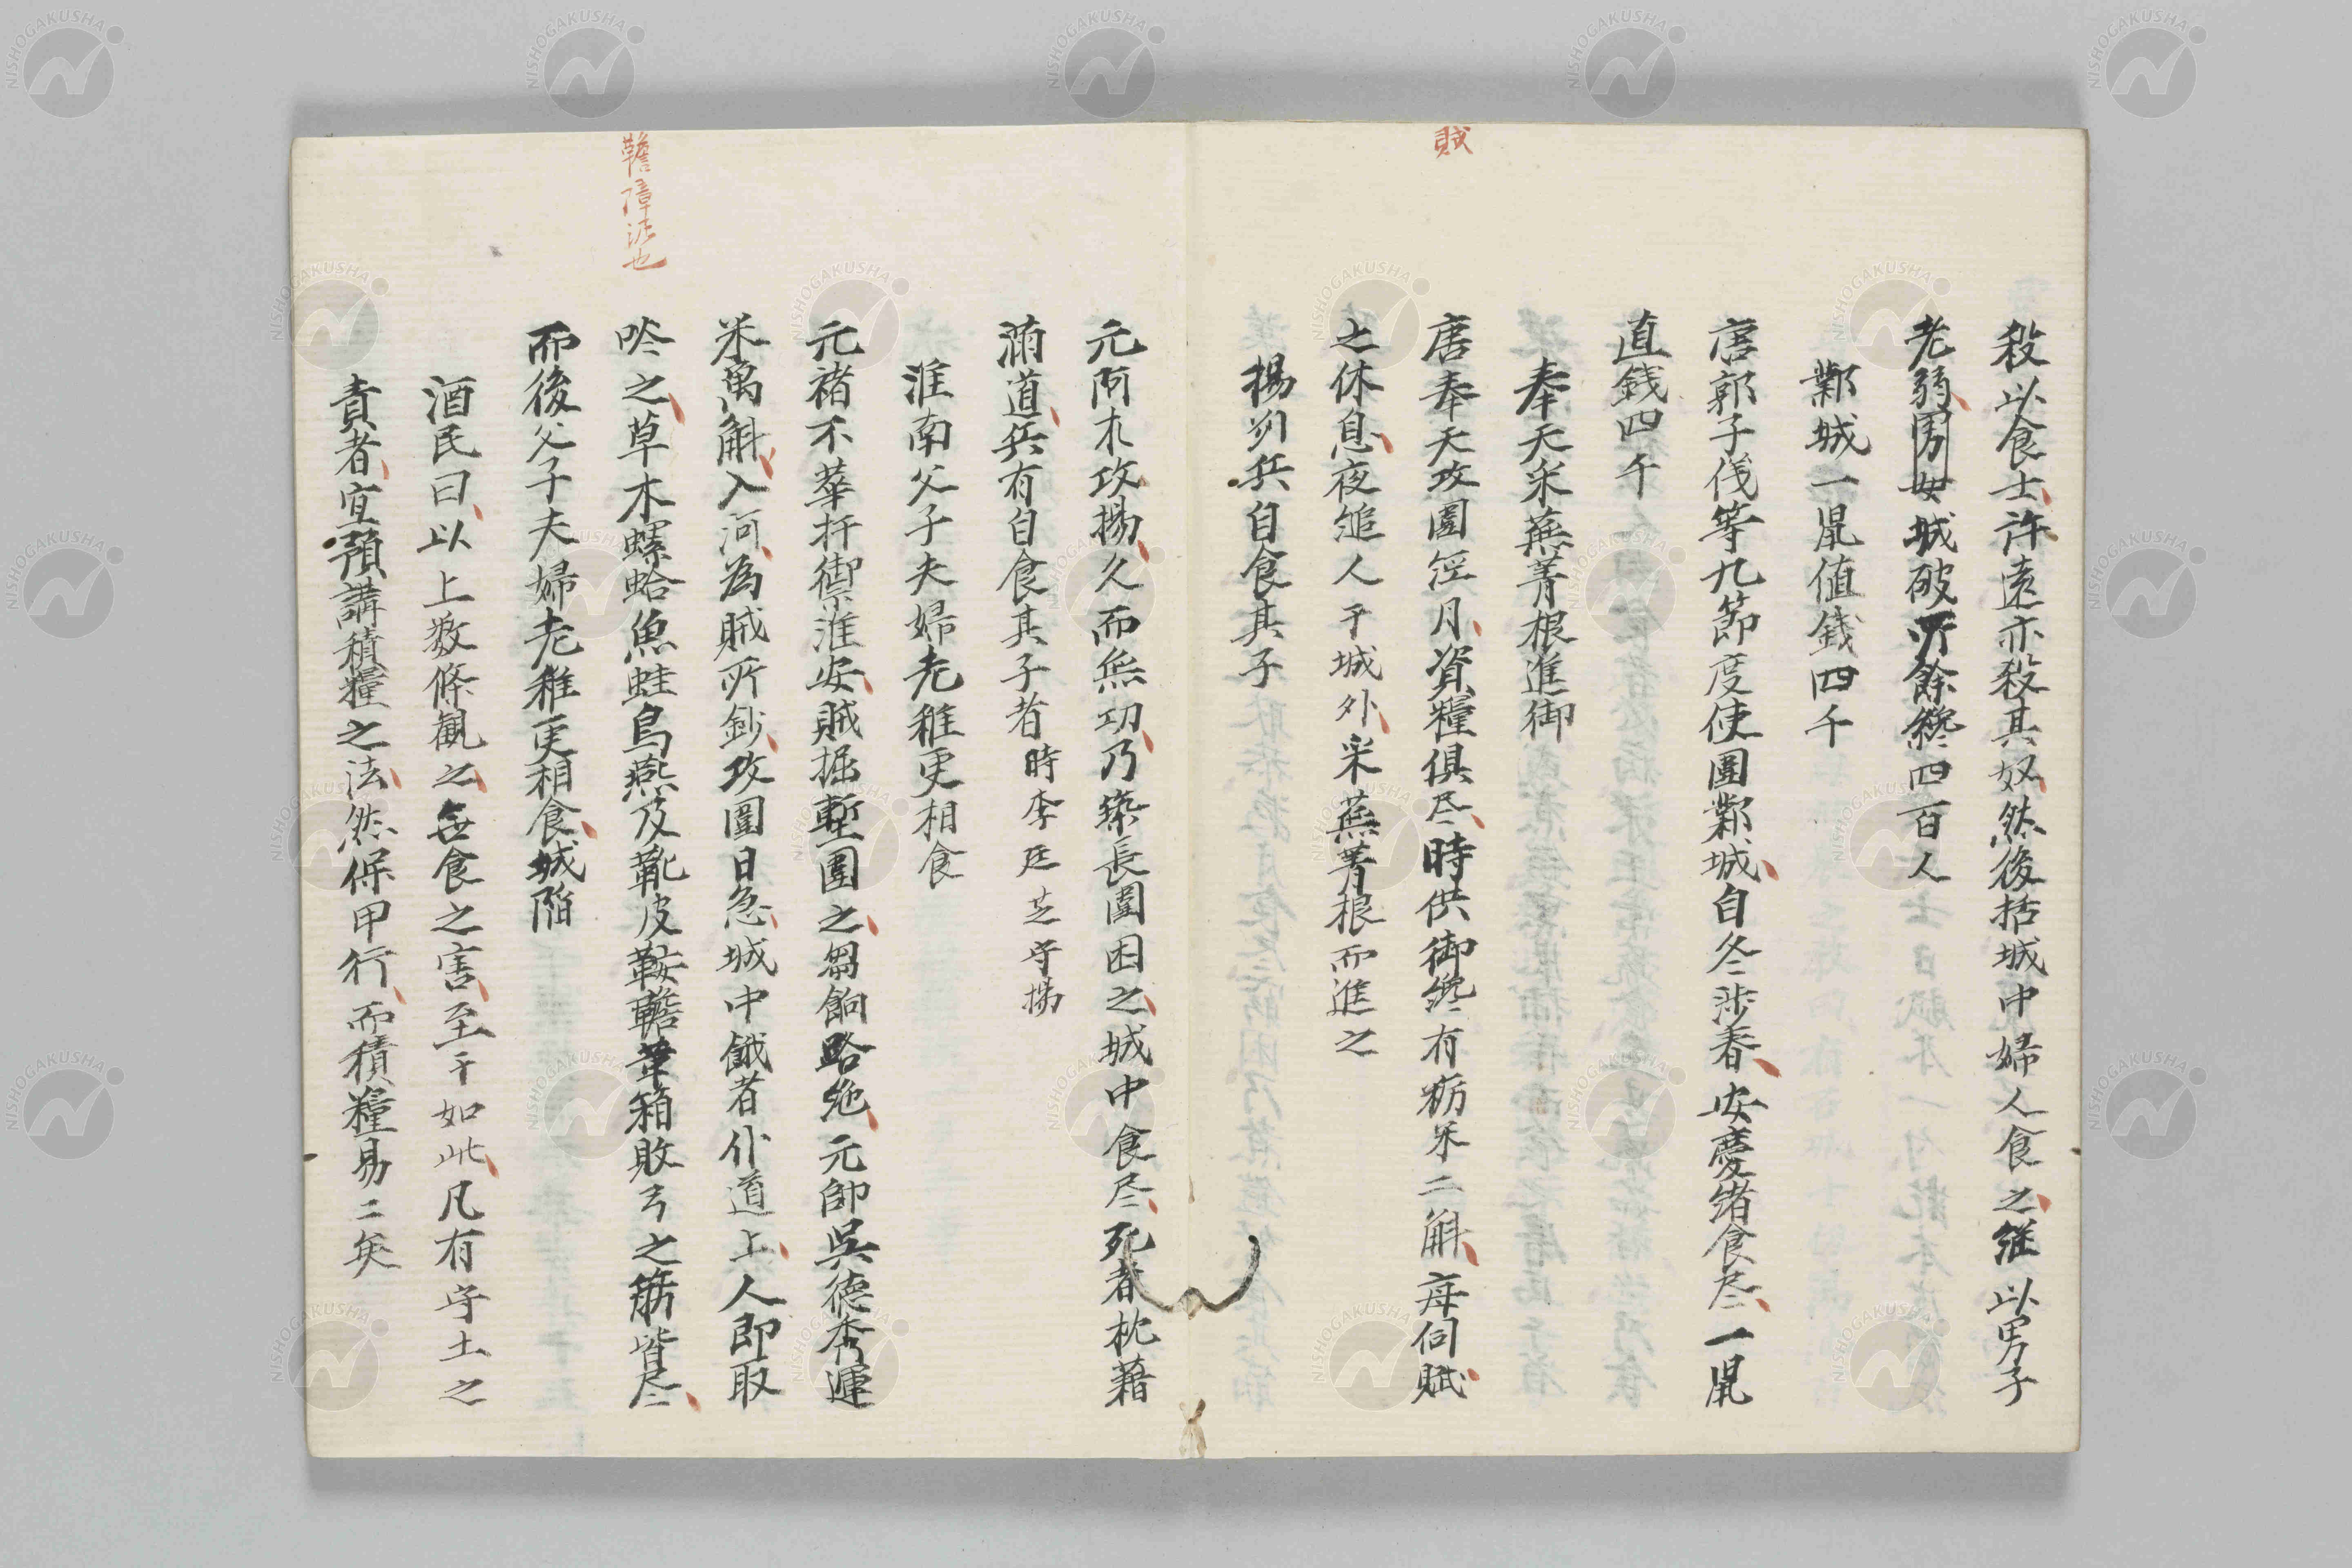 賊
殺以食士許遠亦殺其奴然後括城中婦人食之継以男子
老弱男女城破所餘纔四百人
鄴城一鼠値銭四千
唐郭子儀等九節度使圍鄴城自冬渉春安慶緒食尽一鼠
直銭四千
奉天采蕪菁根進御
唐奉天攻圍經月資糧倶尽時供御纔有粝米二斛毎伺賊
之休息夜縋人于城外采蕪菁根而進之
揚州兵自食其子
元阿朮攻揚久而無功乃築長圍困之城中食尽死者枕藉
満道兵有自食其子者時李廷芝守揚
淮南父子夫婦老稚更相食
元褚不華扞禦淮安賊掘塹圍之芻餉路絶元帥呉德秀運
米萬斛入河為賊所鈔攻圍日急城中餓者仆道上人即取
啖之草木螺蛤魚蛙鳥燕及靴皮鞍韂革箱敗弓之筋皆尽
而後父子夫婦老稚更相食城陥
酒民曰以上数條観之無食之害至于如此凡有守土之
責者宜預講積糧之法然保甲行而積糧易二矣
韂障泥也
NISHOGAKUSHA